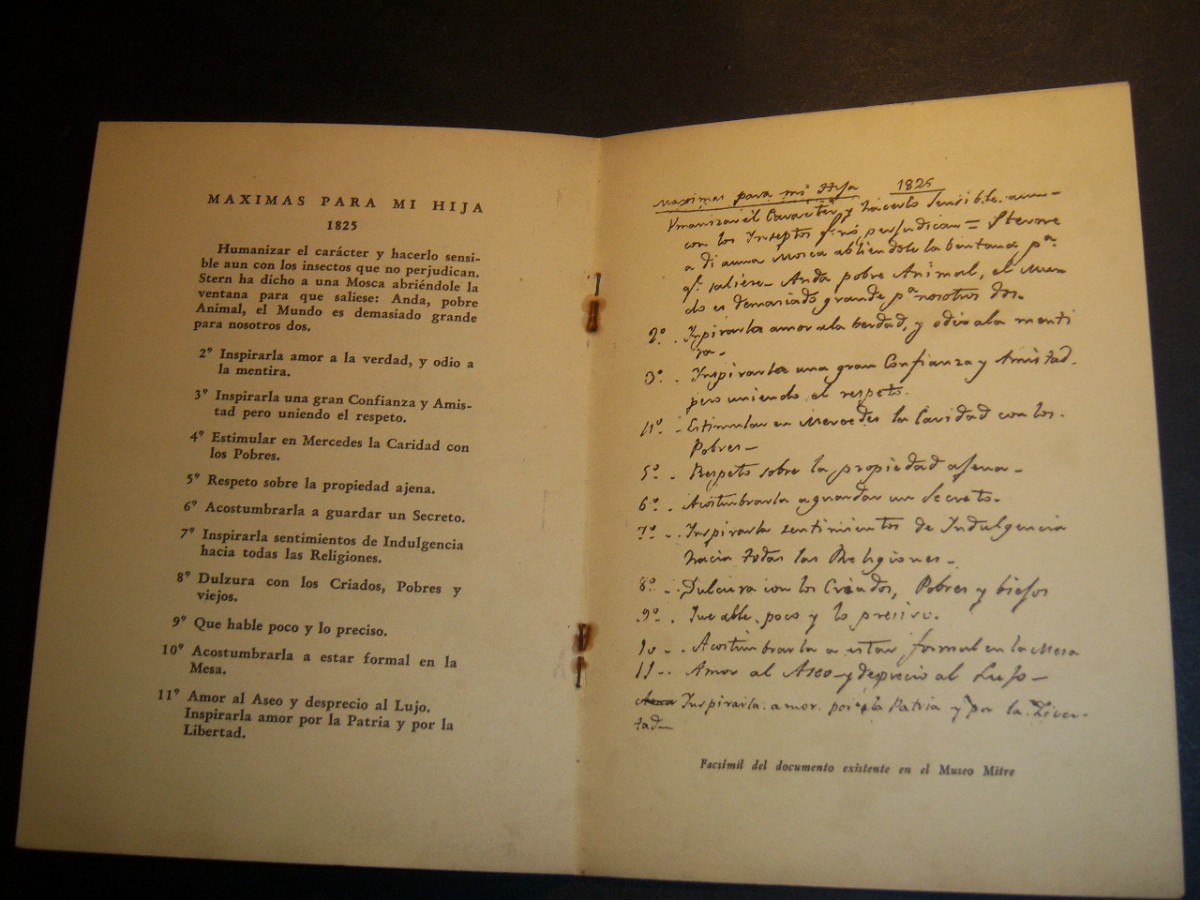 MAXIMAS PARA MI HIJA
1825
Humanizar el carácter y hacerlo sensi-
ble aun con los insectos que no perjudican.
Stern ha dicho a una Mosca abriéndole la
ventana para que saliese: Anda, pobre
Animal, el Mundo es demasiado grande
para nosotros dos.
2º Inspirarla amor a la verdad, y odio a
la mentira.
3º Inspirarla una gran Confianza y Amis-
tad pero uniendo el respeto.
4º Estimular en Mercedes la Caridad con
los Pobres.
5º Respeto sobre la propiedad ajena.
6º Acostumbrarla a guardar un Secreto.
7º Inspirarla sentimientos de Indulgencia
hacia todas las Religiones.
8º Dulzura con los Criados, Pobres y
viejos.
9º Que hable poco y lo preciso.
10º Acostumbrarla a estar formal en la
Mesa.
11º Amor al Aseo y desprecio al Lujo.
Inspirarla amor por la Patria y por la
Libertad.
Maximas para mi Hija 1825
el Caracter y hacerlo sensible aun
con los Inseptos perjudican = Sterne
a una Mosca abliendole la bentana pª
qº saliese Anda pobre Animal, el Mun
do es demasiado grande pª nosotros dos.
2º.. Inpirarla amor a la berdad, y odio a la menti
ra-
3º.. Inspirarla una gran Confianza y Amistad
pero uniendo el respeto.
4º.. Estimular en Mercedes la Caridad con los
Pobres-
5º.. Respeto sobre la propiedad agena-
6º.. Acostumbrarla a guardar un Secreto.
7º.. Inspirarla sentimientos de Indulgencia
hacia todas las Religiones-
8º.. Dulsura con los Criados, Pobres y biejos
9º.. Que able poco y lo presiso.
10.. Acostumbrarla a estar formal en la Mesa
11.. Amor al Aseo y desprecio al Lujo-
Inspirarla amor por la Patria y por la Liver-
tad
Facsímil del documento existente en el Museo Mitre